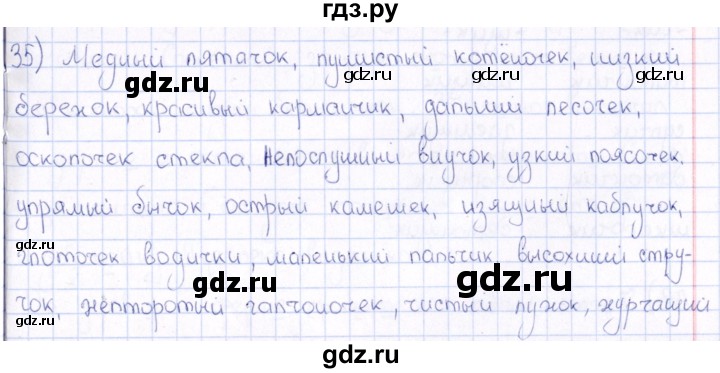 гдз.ру
35) Медный пятачок, пушистый котёночек, низкий
gdz.ru gdz.ru gdz.ru
бережок, красивый карманчик, дальний песочек,
осколочек стекла, непослушный внучок, узкий поясочек,
gdz.ru gdz.ru
упрямый бычок, острый камешек, изящный каблучок,
глоточек водички, маленький пальчик, высохший стру-
gdz.ru gdz.ru gdz.ru
чок, желторотый галчоночек, чистый лужок, журчащий
gdz.ru